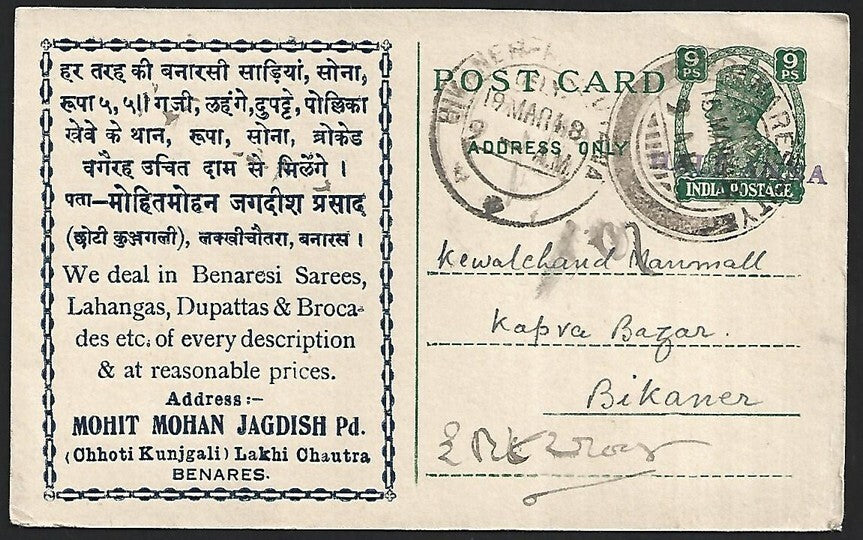 हर तरह की बनारसी साड़ियां, सोना,
रूपा ५, ५॥ गजी, लहंगे, दुपट्टे, पोल्लिका
खेवे के थान, रूपा, सोना, ब्रोकेड
वगैरह उचित दाम से मिलेंगे ।
पता—मोहितमोहन जगदीश प्रसाद
(छोटी कुञ्जगली), लक्खीचौतरा, बनारस ।
We deal in Benaresi Sarees,
Lahangas, Dupattas & Broca-
des etc. of every description
& at reasonable prices.
Address :-
MOHIT MOHAN JAGDISH Pd.
(Chhoti Kunjgali) Lakhi Chautra
BENARES.
POST CARD
ADDRESS ONLY
9 PS 9 PS
INDIA POSTAGE
BIKANER
19 MAR 48
Kewalchand Manmall
Kapra Bazar.
Bikaner